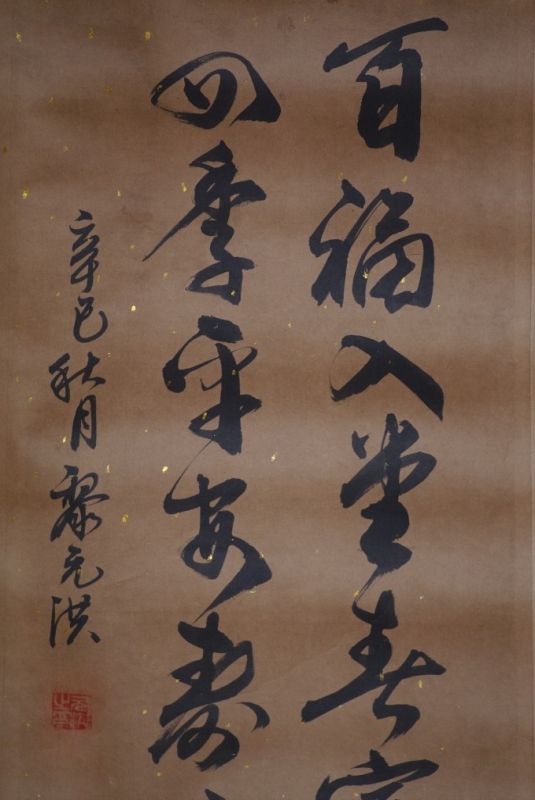 百福入堂春
四季平安壽
辛巳秋月黎元洪